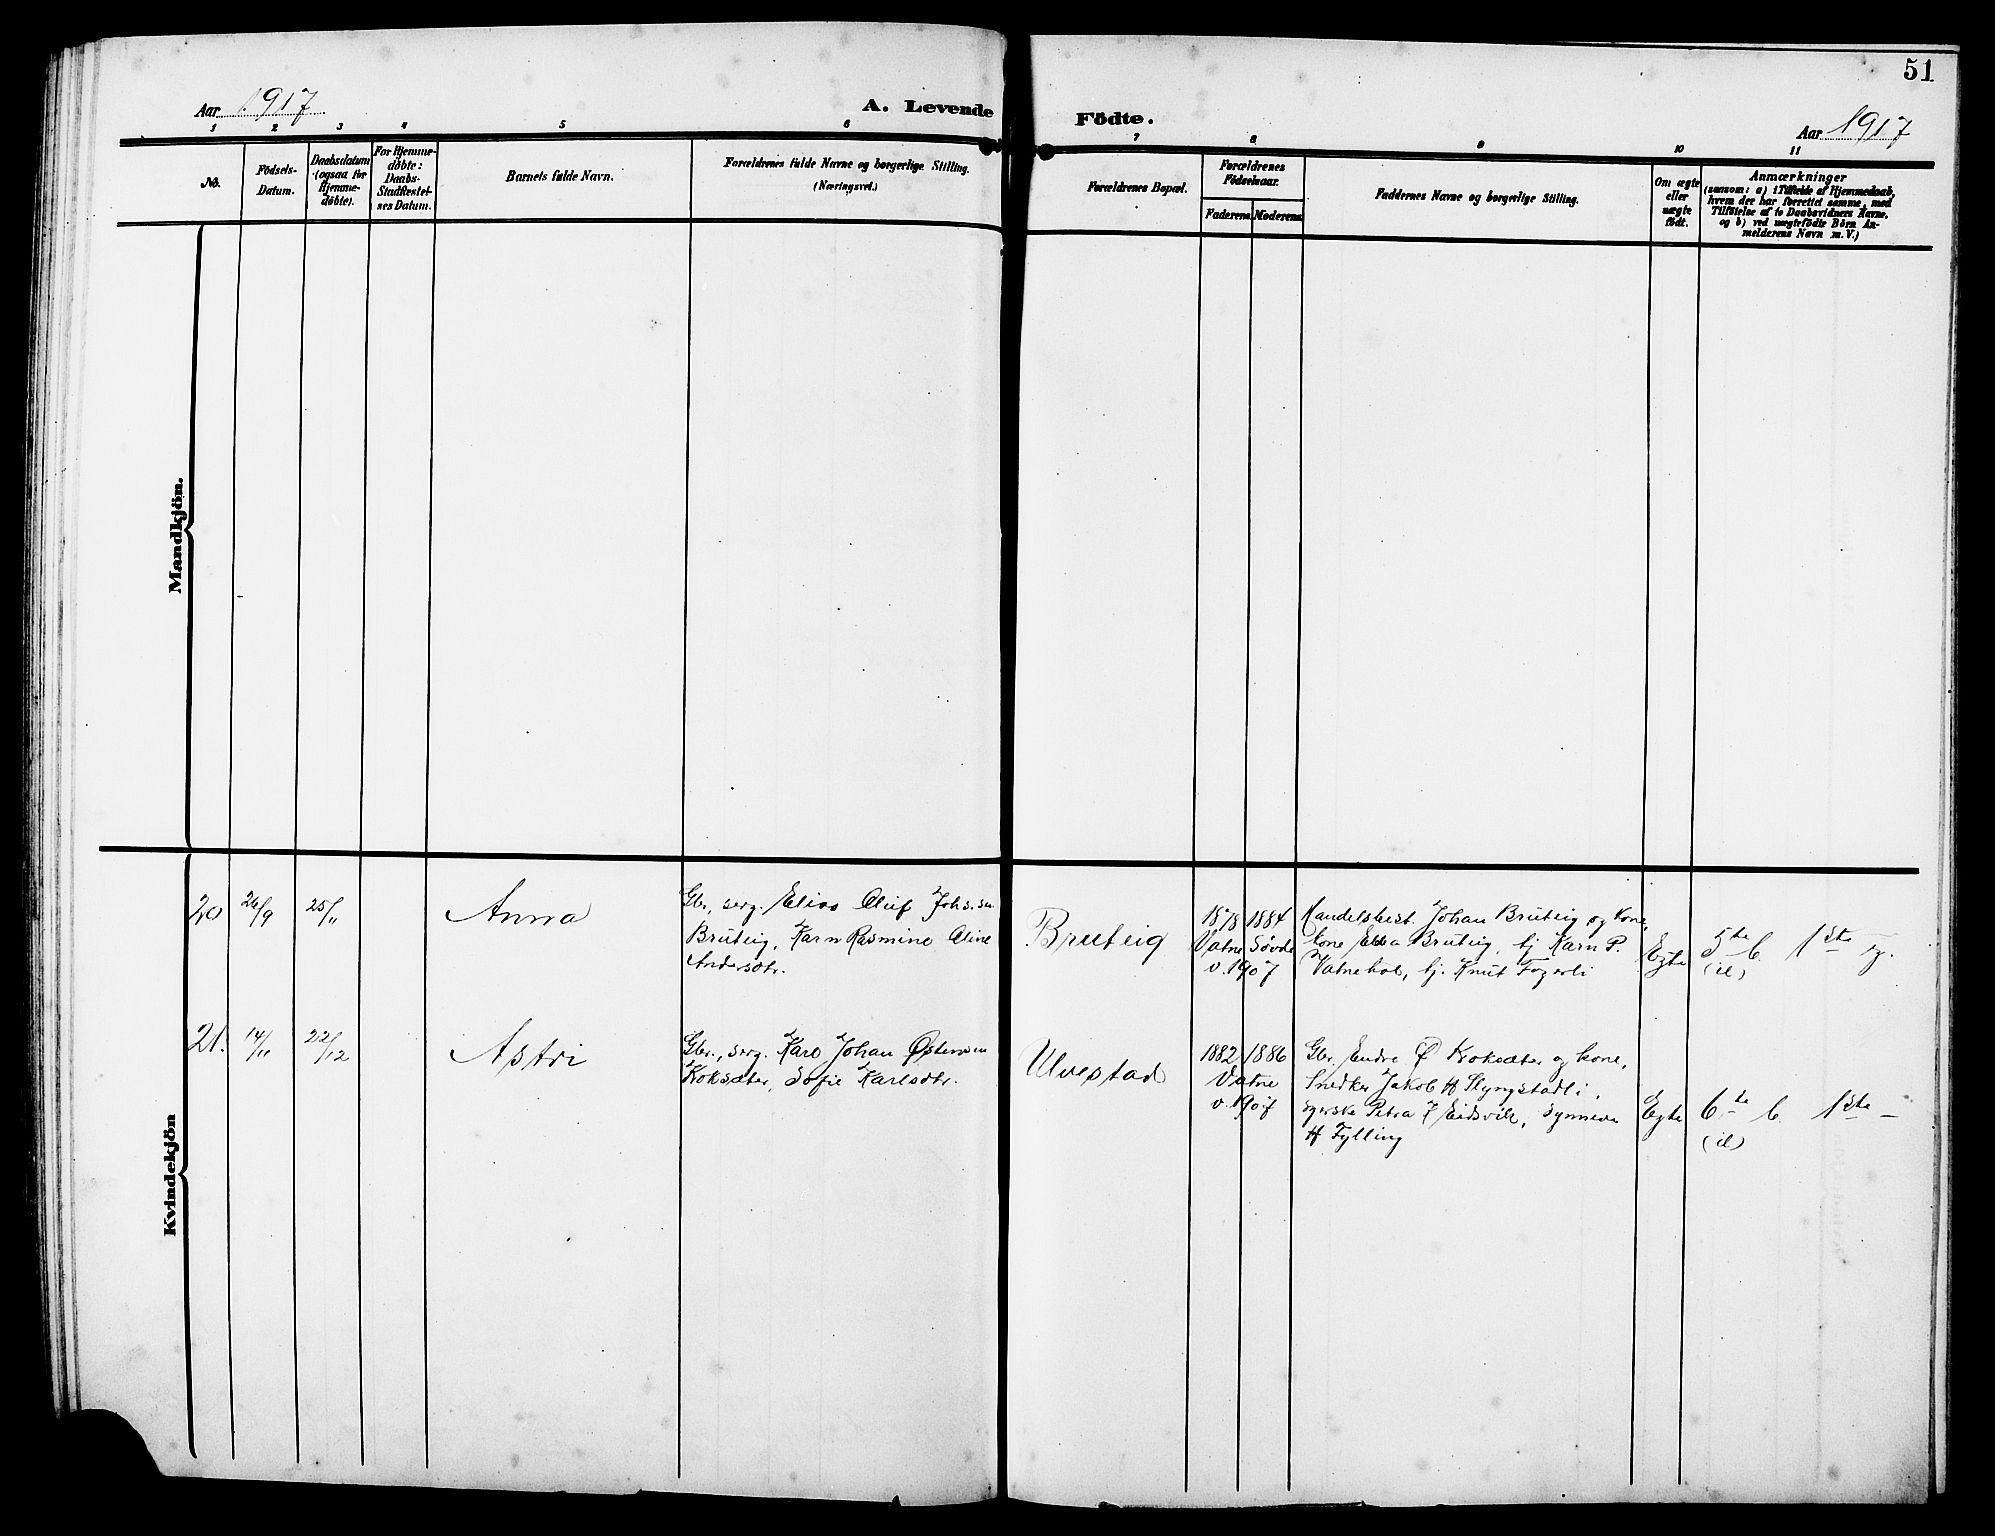 51
Aar 1917
A. Levende
Födte.
Aar 1917
1 2 3 4 5 6 7 8 9 10 11
No.
Födsels-
Datum.
Daabsdatum
(ogsaa for
Hjemme-
döbte).
For Hjemme-
döbte:
Daabs-
Stadfæstel-
ses Datum.
Barnets fulde Navn.
Forældrenes fulde Navne og borgerlige Stilling.
(Næringsvei.)
Forældrenes Bopæl.
Forældrenes
Födselsaar.
Faderens. Moderens.
Faddernes Navne og borgerlige Stilling.
Om ægte
eller
uægte
födt.
Anmærkninger
(saasom: a) i Tilfælde af Hjemmedaab,
hvem der har forrettet samme, med
Tilföielse af to Daabsvidners Navne,
og b) ved uægtefödte Börn An-
melderens Navn m. V.)
Mandkjön.
Kvindekjön
20
26/9
25/11
Anna
Gbr., serg. Elias Oluf Johs.sn
Bruteig, Karn Rasmine Oline
Andersdtr.
Bruteig
1878 1884
Vatne Søvde
v. 1907
Handelsbest. Johan Bruteig og kone,
kone Ella Bruteig, bj Karn P.
Vatnehol, bj. Knut Fogerli
Egte
5te b. 1ste eg.
(il)
21.
14/11
22/12
Astri
Gbr., serg. Karl Johan Østensen
Koksæter, Sofie Karlsdtr.
Ulvestad
1882 1886
Vatne
v. 1907
Gbr. Endre Ø Koksæter og kone,
Snedker Jakob H Slyngstadli,
syerske Petra J Eidsvik, Synneve
H Fylling
Egte
6te b. 1ste —
(il)